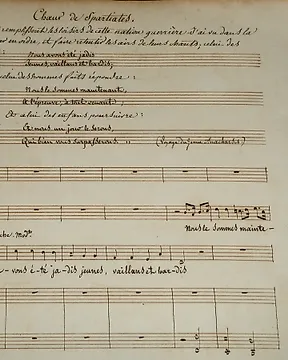 Chœur de Spartiates.
remplissent les loisirs de cette nation guerrière J'ai vu dans la
en ordre, et faire retentir les airs de leurs chants, celui des
Nous avons été jadis
Jeunes, vaillans et hardis;
celui des hommes faits répondre :
Nous le sommes maintenant,
A l'épreuve, à tout venant;
Et celui des enfans poursuivre :
Et nous un jour le serons,
Qui bien vous surpasserons. " (Voyage du jeune Anacharsis)
Nous le sommes mainte-
Mod.to
- vons é-té ja-dis jeunes, vaillans et har-dis